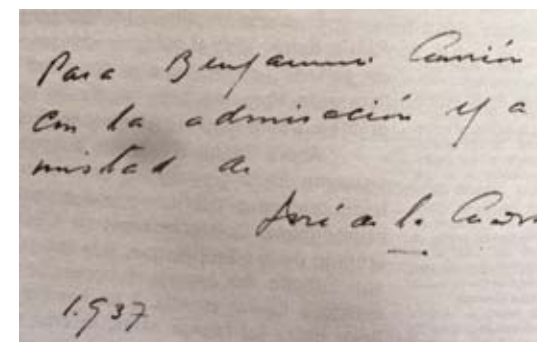 Para Benjamin Carrión
con la admiración y a
mistad de
José de la Cuadr
1.937